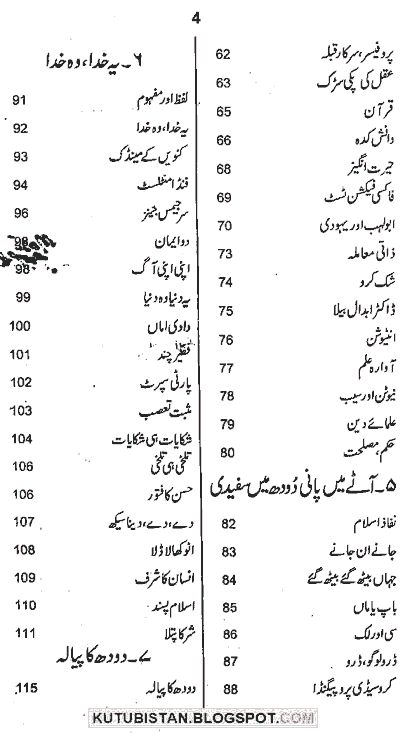 4
پروفیسر، سرکار قبلہ 62
عقل کی پکی سڑک 63
قرآن 65
دانش کدہ 66
حیرت انگیز 68
فاکسی فیکیشن ٹسٹ 69
ابولہب اور یہودی 70
ذاتی معاملہ 73
شک کرو 74
ڈاکٹر ابدال بیلا 75
انٹیوشن 76
آوارہ علم 77
نیوٹن اور سیب 78
علمائے دین 79
حکم، مصلحت 80
۵۔ آٹے میں پانی دُودھ میں سفیدی
نفاذ اسلام 82
جانے ان جانے 83
جہاں بیٹھ گئے بیٹھ گئے 84
باپ یا ماں 85
سی اور لک 86
ڈرو لوگو، ڈرو 87
کروسیڈی پروپیگنڈا 88
۶۔ یہ خدا، وہ خدا
لفظ اور مفہوم 91
یہ خدا، وہ خدا 92
کنویں کے مینڈک 93
فنڈامنٹلسٹ 94
سر جیمس جینز 96
دو ایمان
اپنی اپنی آگ 98
یہ دنیا وہ دنیا 99
دادی اماں 100
چند 101
پارٹی سپرٹ 102
مثبت تعصب 103
شکایات ہی شکایات 104
تلخی ہی تلخی 106
حسن کا فتور 106
دے، دے، دینا سیکھ 107
انوکھا لاڈلا 108
انسان کا شرف 109
اسلام پسند 110
شر کا پتلا 111
۷۔ دودھ کا پیالہ
دودھ کا پیالہ 115
KUTUBISTAN.BLOGSPOT.COM